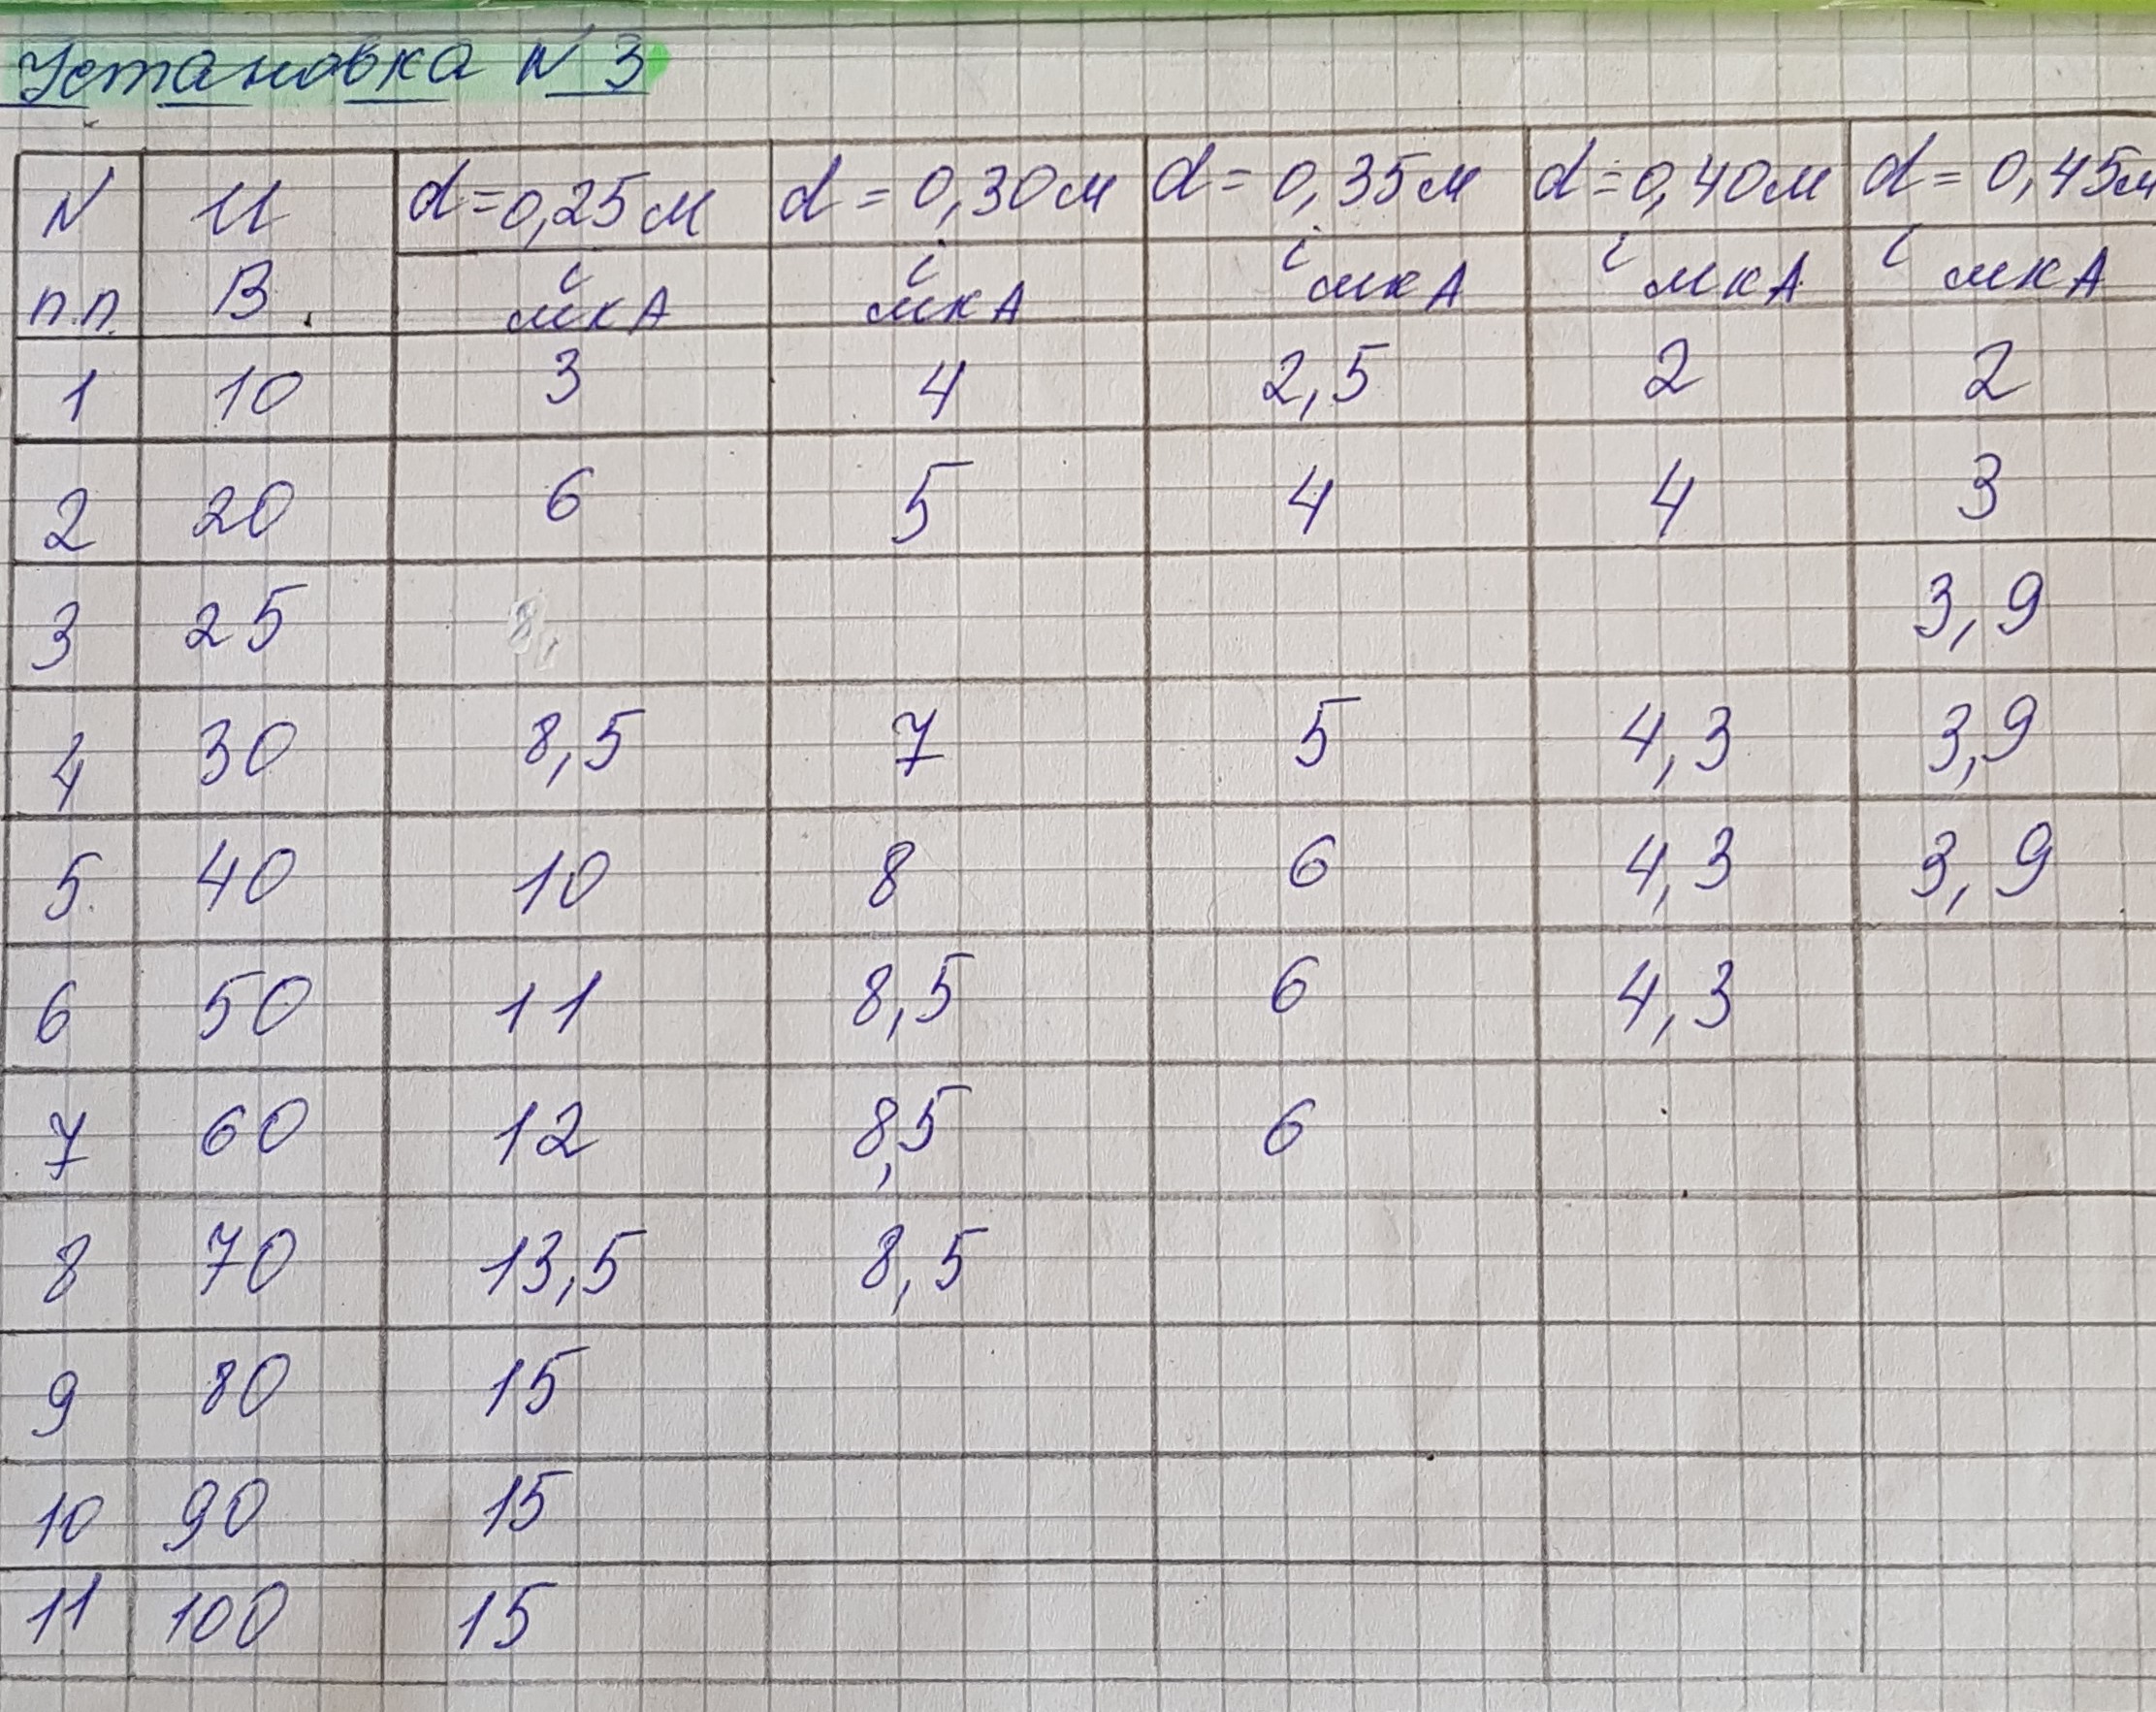 Установка N 3
N U d=0,25м d=0,30м d=0,35м d=0,40м d=0,45м
п.п. В. i мкА i мкА i мкА i мкА i мкА
1 10 3 4 2,5 2 2
2 20 6 5 4 4 3
3 25 3,9
4 30 8,5 7 5 4,3 3,9
5 40 10 8 6 4,3 3,9
6 50 11 8,5 6 4,3
7 60 12 8,5 6
8 70 13,5 8,5
9 80 15
10 90 15
11 100 15